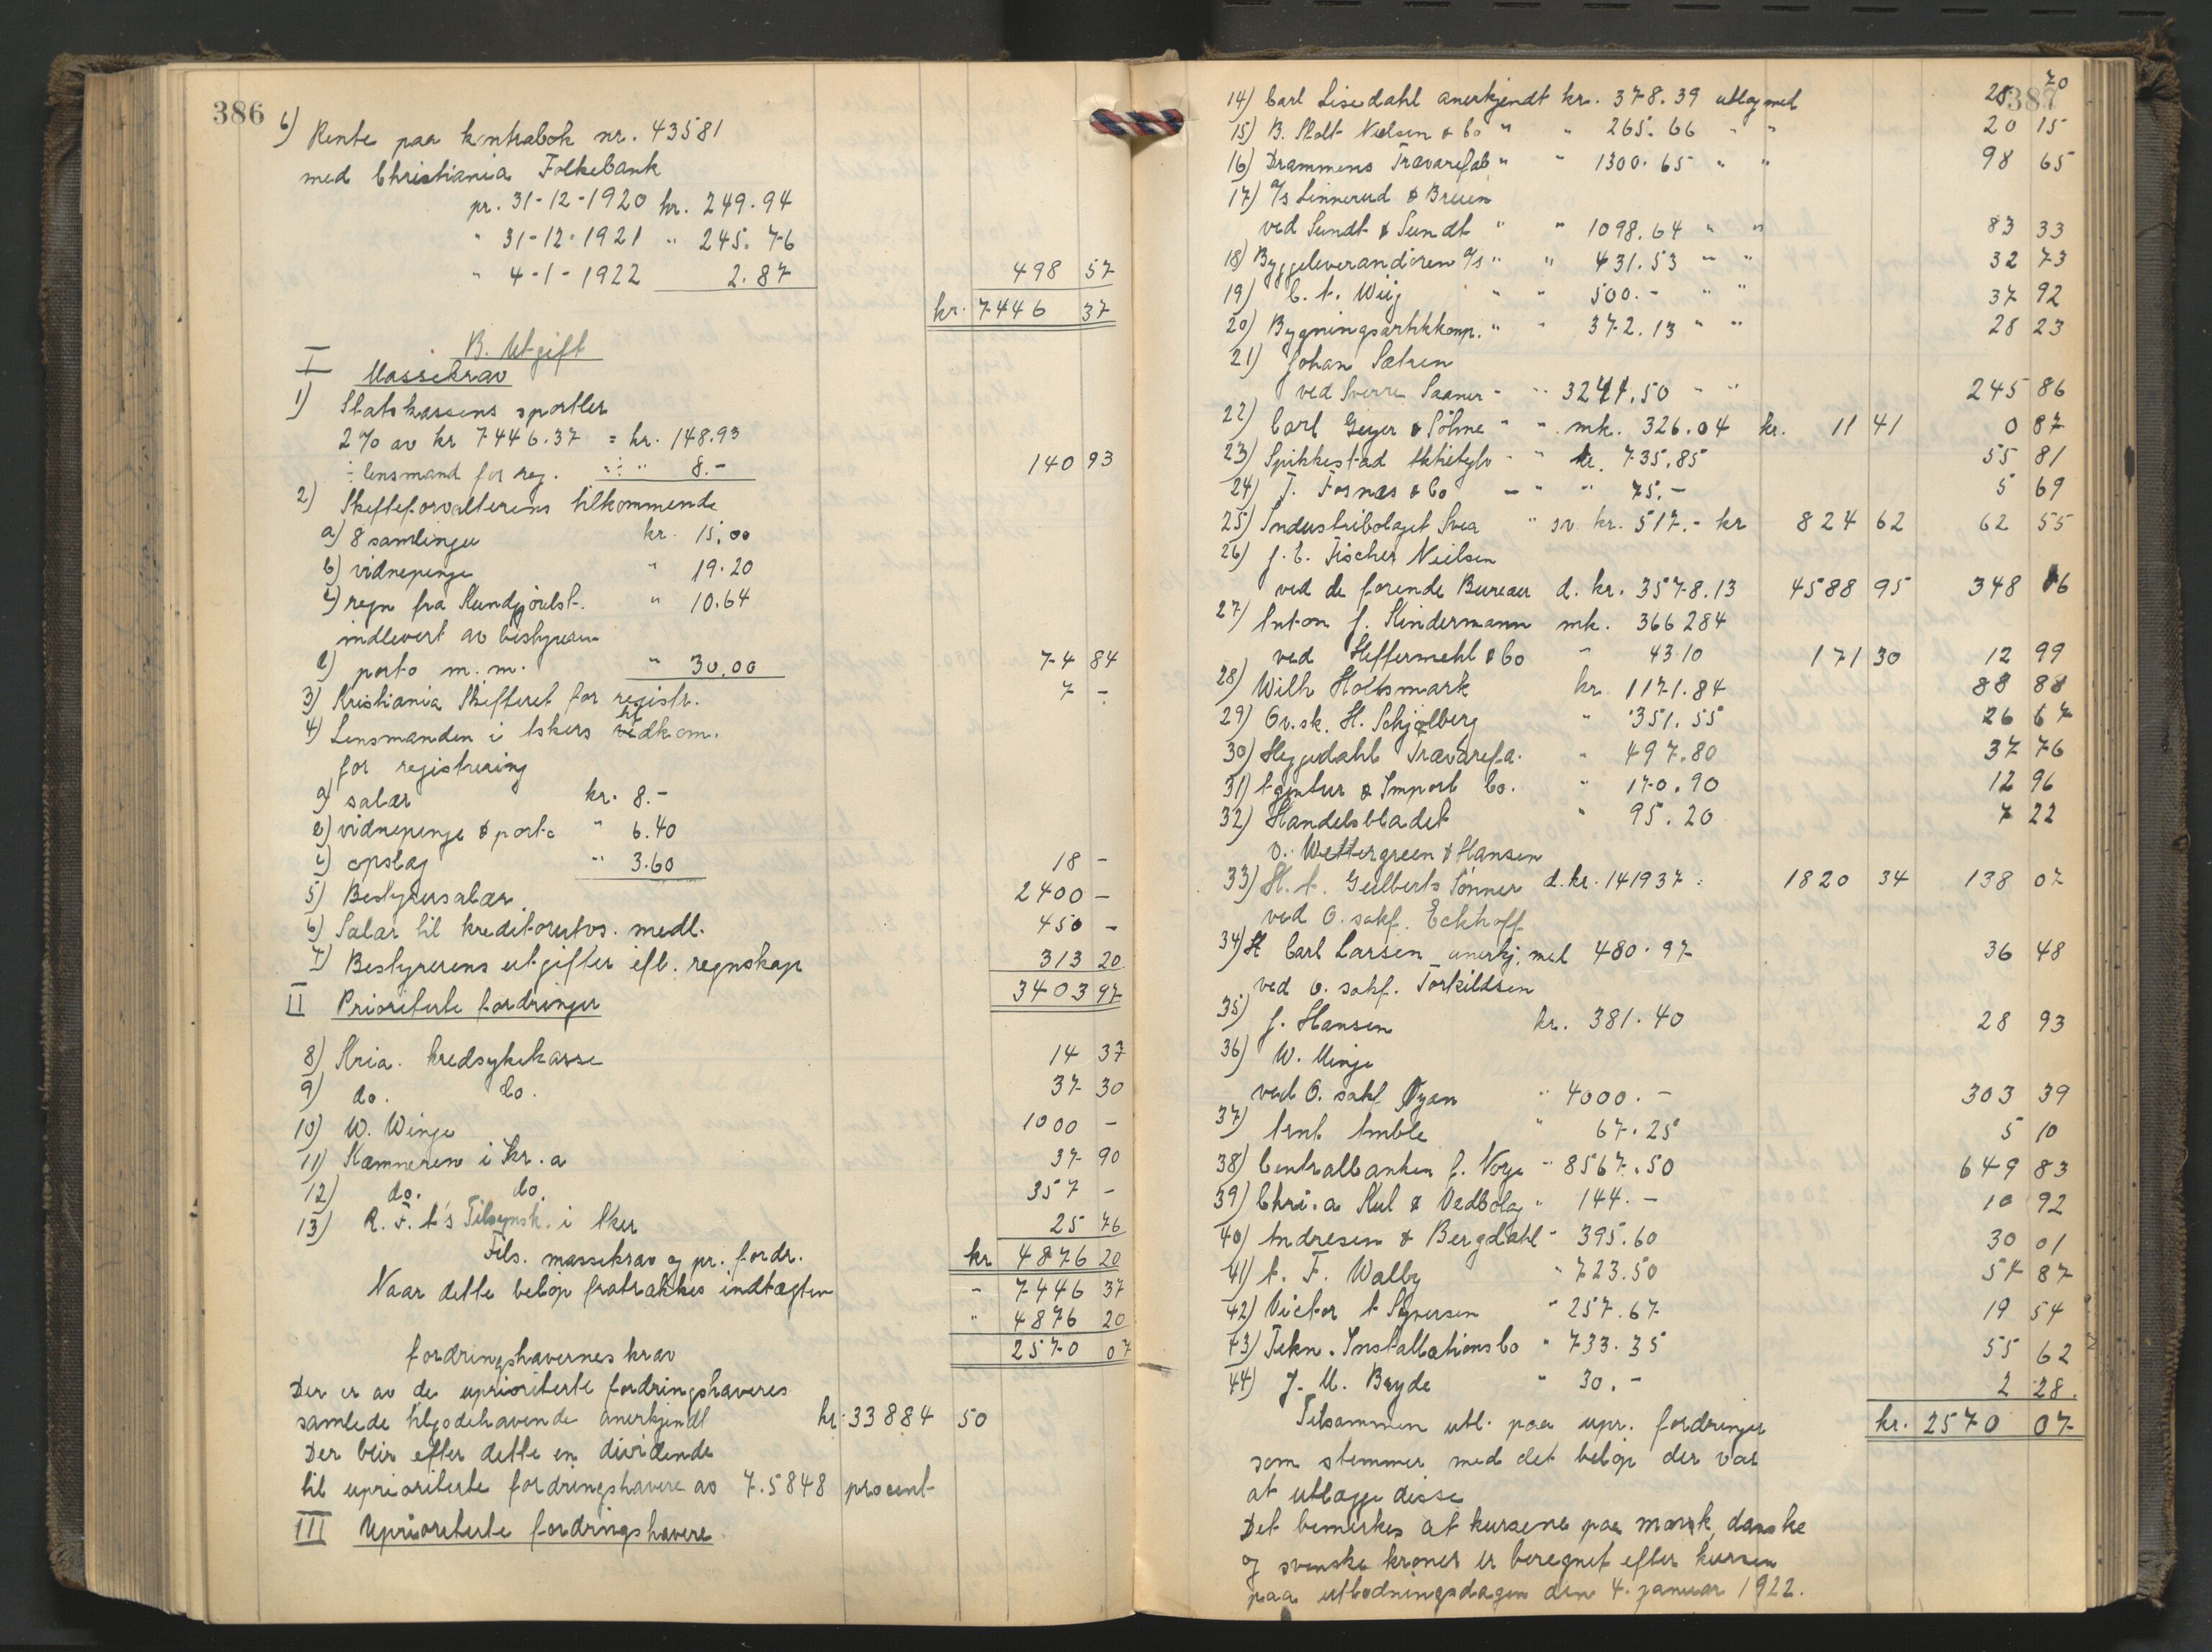 386
6) Rente paa kontrabok nr. 43581
med Christiania Folkebank
pr. 31-12-1920 kr. 249.94
" 31-12-1921 " 245.76
" 4-1-1922 2.87 498 57
kr. 7446 37
B. Utgift
I Massekrav
1) Statskassens sportler
2% av kr 7446.37 = kr. 148.93
÷ lensmand for reg. " 8.- 140 93
2) Skifteforvalterens tilkommende
a) 8 samlinger kr. 15.00
b) vidnepenge " 19.20
c) regn fra Kundgjørelst. " 10.64
indlevert av bestyreren
d) porto m.m. " 30.00 74 84
3) Kristiania Skifteret for registr. 7 -
4) Lensmanden i Askers vedkom.
for registrering
a) salær kr. 8.-
b) vidnepenge & porto " 6.40
c) opslag " 3.60 18 -
5) Bestyrersalær 2400 -
6) Salær til kreditorutvs. medl. 450 -
7) Bestyrerens utgifter efl. regnskap 313 20
3403 97
II Prioriterte fordringer
8) Kria. kredsykekasse 14 37
9) do. do. 37 30
10) W. Winge 1000 -
11) Kæmneren i Kr.a 37 90
12) do. do. 357 -
13) R.F.A's Tilsynsk. i Aker 25 76
Tils. massekrav og pr. fordr. kr 4876 20
Naar dette beløp fratrækkes indtægten - 7446 37
" 4876 20
fordringshavernes krav 2570 07
Der er av de uprioriterte fordringshaveres
samlede tilgodehavende anerkjendt kr. 33884 50
Der blir efter dette en dividende
til uprioriterte fordringshavere av 7.5848 procent
III Uprioriterte fordringshavere
387
14) Carl Lisedahl anerkjendt kr. 378.39 utlag med 28 70
15) B. Stolt Nielsen & Co " " 265.66 " " 20 15
16) Drammens Trævarefab " " 1300.65 " " 98 65
17) A/s Linnerud & Bruun
ved Sundt & Sundt " " 1098.64 " " 83 33
18) Byggeleverandøren A/s " " 431.53 " " 32 73
19) C. A. Wiig " " 500.- " " 37 92
20) Bygningsartikkomp. " " 372.13 " " 28 23
21) Johan Sætren
ved Sverre Saaner - " 3241.50 - " 245 86
22) Carl Geyer & Söhne " " mk. 326.04 kr. 11 41 0 87
23) Spikkestad Aktietglv - " kr. 735.85 55 81
24) T. Fornæs & Co - " " 75.- 5 69
25) Industribolaget Svea " sv. kr. 517.- kr 824 62 62 55
26) J. C. Fischer Nielsen
ved de forende Bureauer d. kr. 3578.13 4588 95 348 06
27) Anton J. Kindermann mk. 366284
ved Heffermehl & Co - 43.10 171 30 12 99
28) Wilh Holtsmark kr. 1171.84 88 88
29) Ov.sk. H. Schjølberg " 351.55 26 67
30) Heggedahls Trævarefa. " 497.80 37 76
31) Agentur & Import Co. " 170.90 12 96
32) Handelsbladet " 95.20 7 22
v. Wettergreen & Hansen
33) H. A. Gulberts Sønner d. kr. 1419.37 : 1820 34 138 07
ved O. sakf. Eckhoff
34) Carl Larsen anerkj. med 480.97 36 48
ved o. sakf. Torkildsen
35) J. Hansen kr. 381.40 28 93
36) W. Winge
ved O. sakf Øyan " 4000.- 303 39
37) Arnt Amble " 67.25 5 10
38) Centralbanken f. Norge " 8567.50 649 83
39) Chri.a Kul & Vedbolag " 144.- 10 92
40) Andresen & Bergdahl - 395.60 30 01
41) A. F. Walby " 723.50 54 87
42) Victor A Syversen " 257.67 19 54
43) Tekn. Installationsbo " 733.35 55 62
44) J. M. Bryde " 30.- 2 28.
Tilsammen utl. paa upr. fordringer kr. 2570 07
som stemmer med det beløp der var
at utlægge disse
Det bemerkes at kursene paa mark, danske
og svenske kroner er beregnet efter kursen
paa utlodningsdagen den 4. januar 1922.